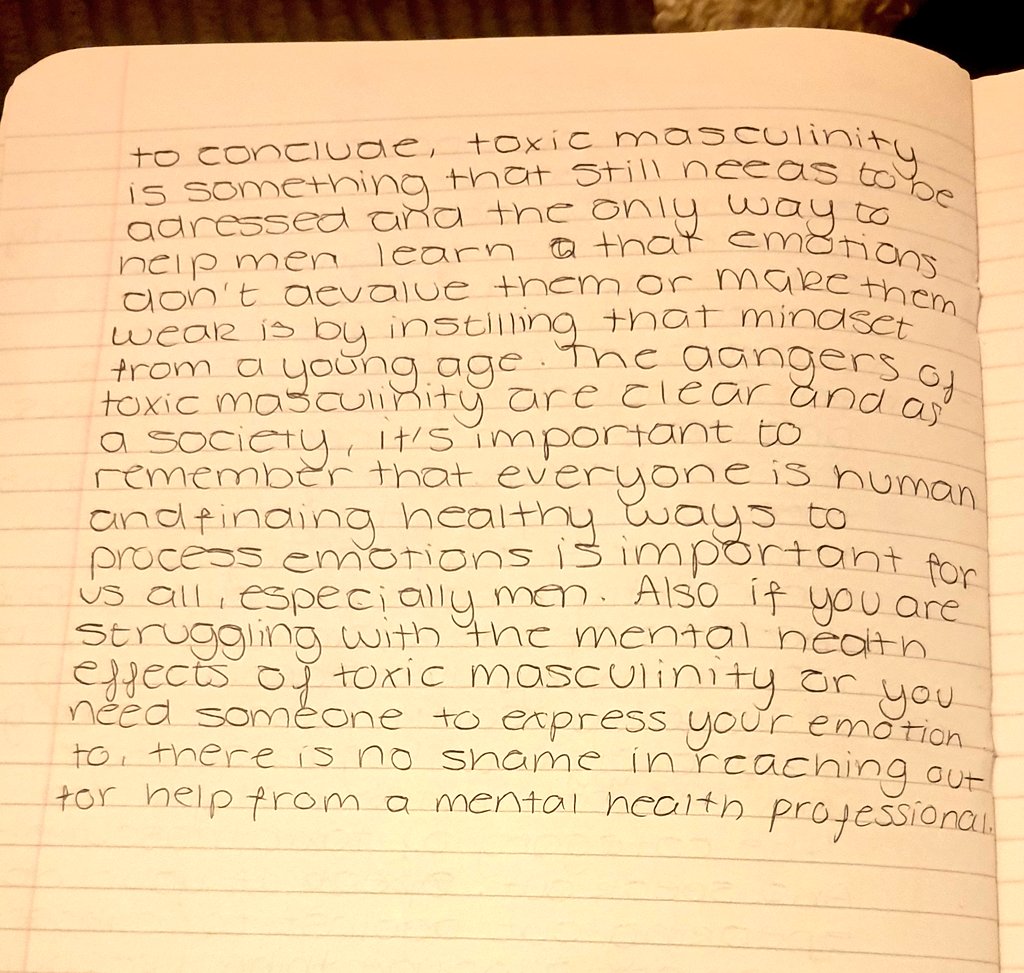 to conclude, toxic masculinity
is something that still needs to be
adressed and the only way to
help men learn that emotions
don't devalue them or make them
weak is by instilling that mindset
from a young age. The dangers of
toxic masculinity are clear and as
a society, it's important to
remember that everyone is human
and finding healthy ways to
process emotions is important for
us all, especially men. Also if you are
struggling with the mental health
effects of toxic masculinity or you
need someone to express your emotion
to, there is no shame in reaching out
for help from a mental health professional.